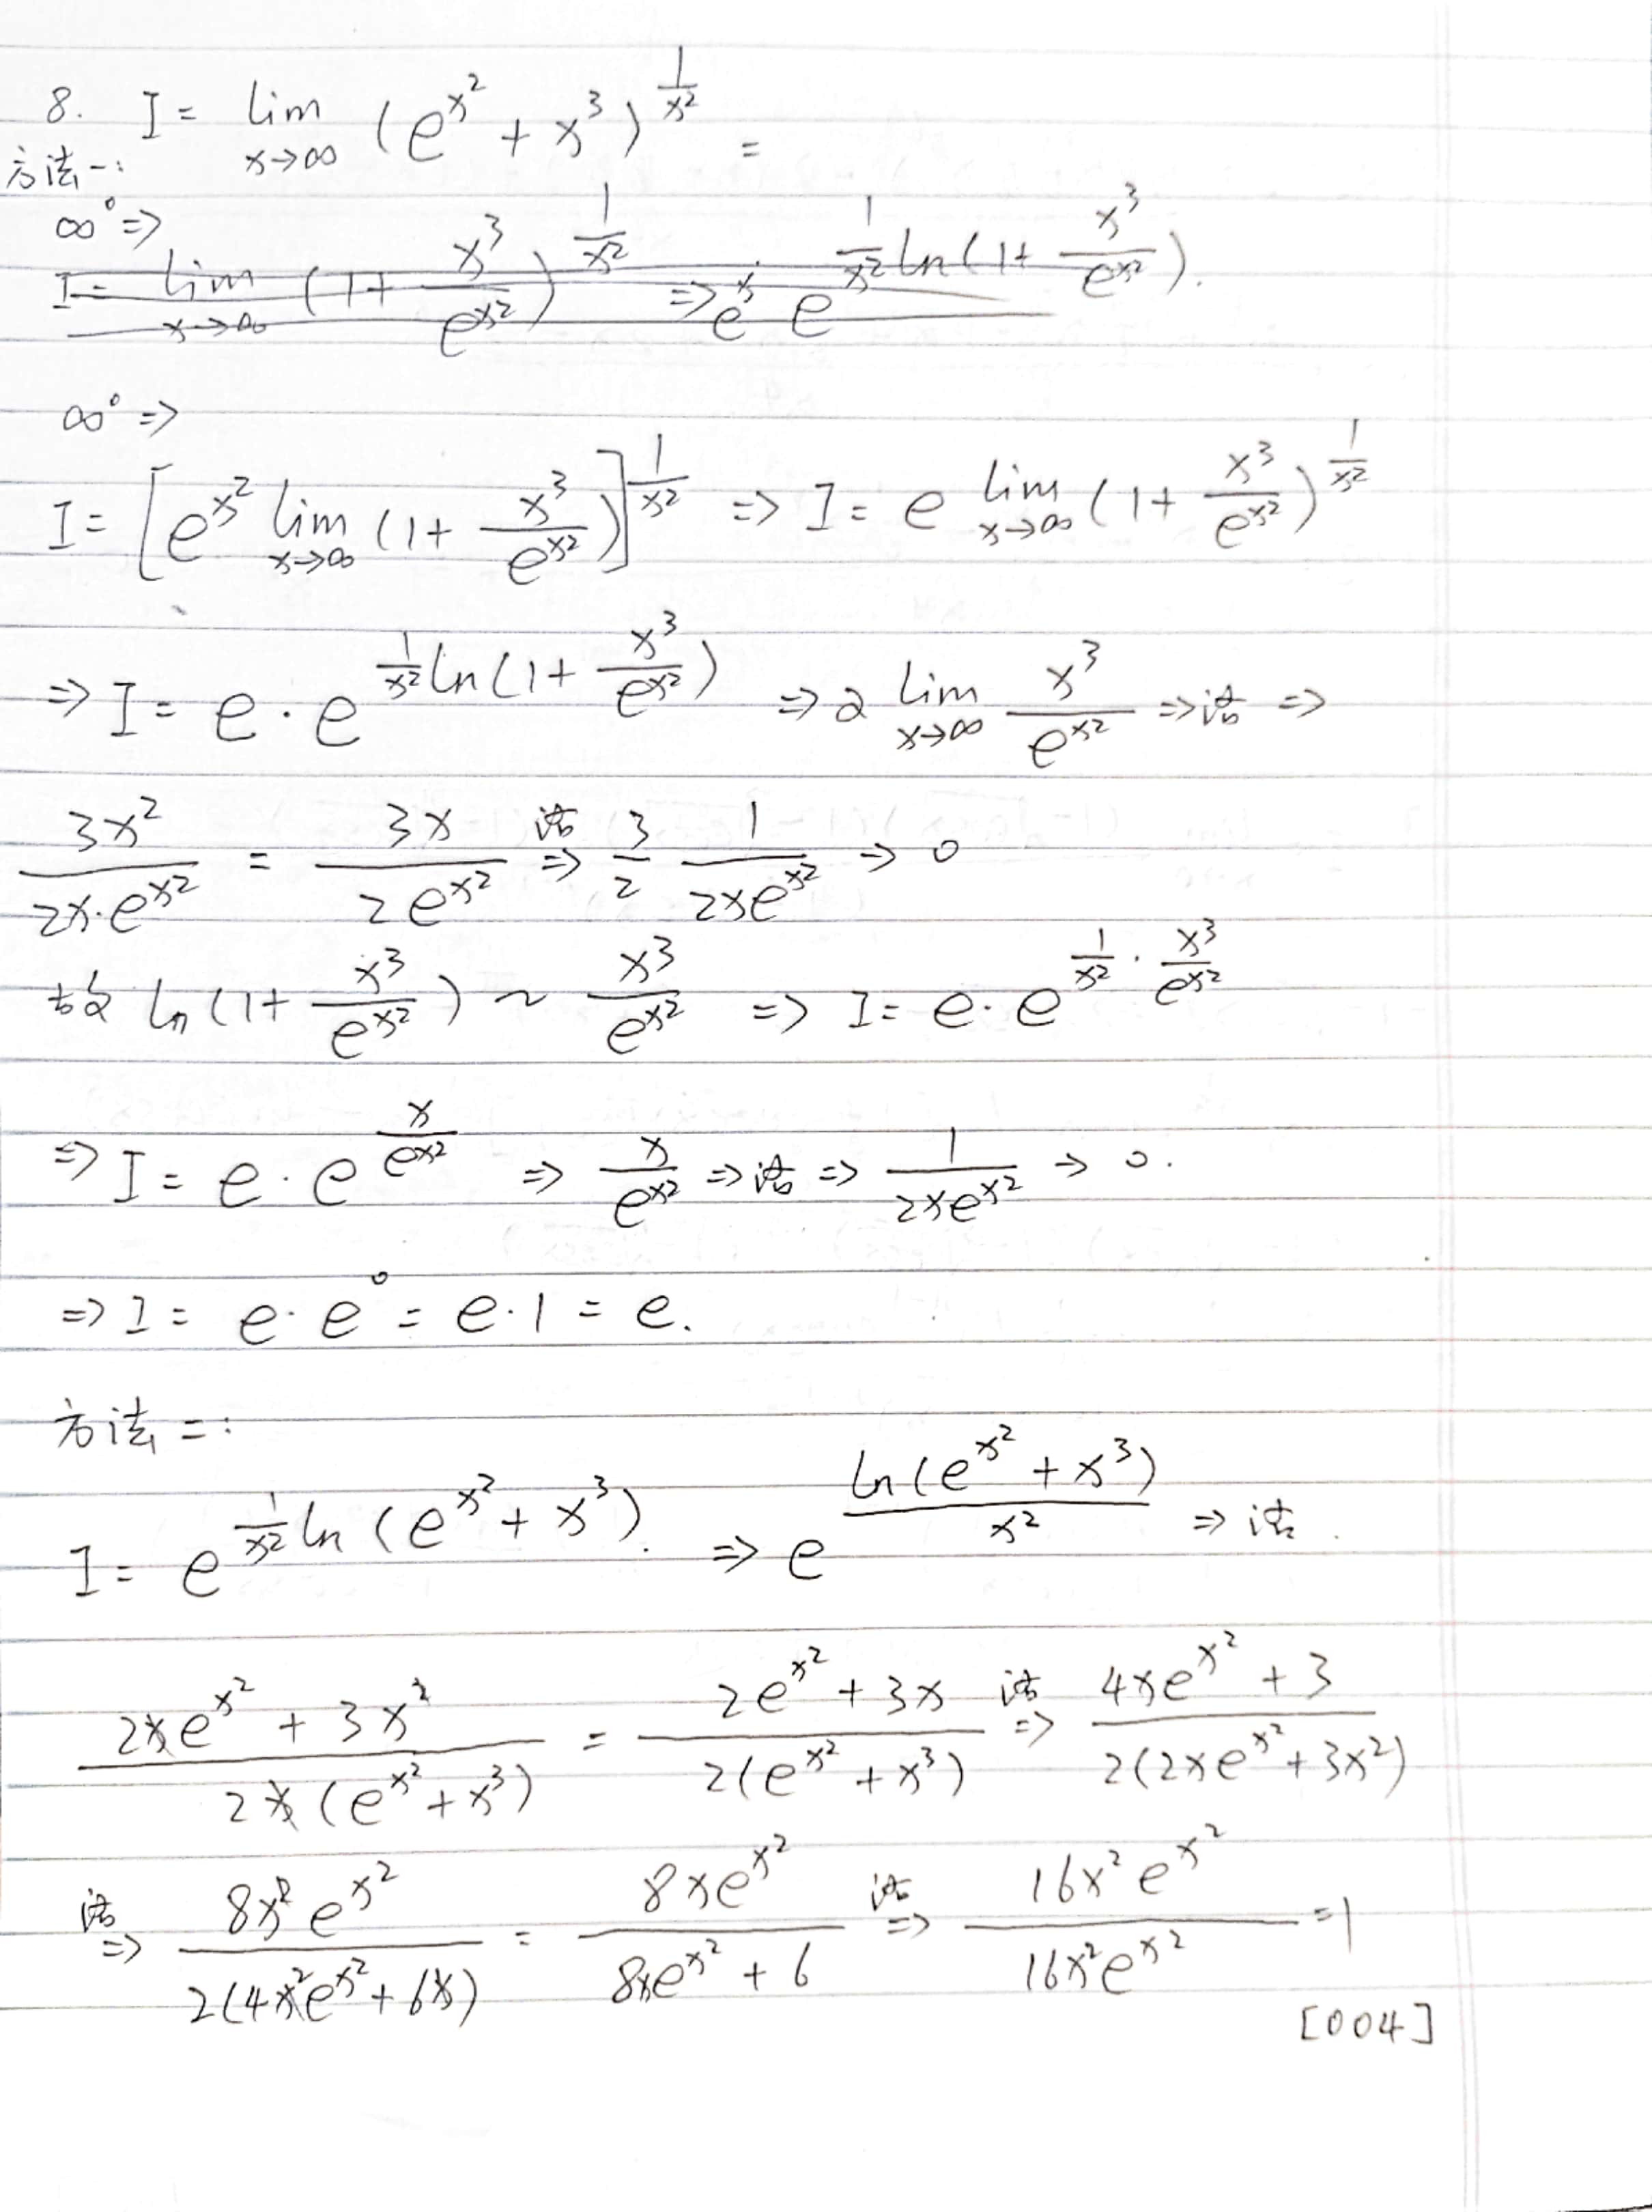 8. I = lim_{x→∞} (e^{x²} + x³)^{1/x²} =
方法一:
∞⁰ ⇒
I = lim_{x→∞} (1 + x³/e^{x²})^{1/x²} ⇒ e^x e^{1/x² ln(1 + x³/e^{x²})}.
∞⁰ ⇒
I = [e^{x²} lim_{x→∞} (1 + x³/e^{x²})]^{1/x²} ⇒ I = e lim_{x→∞} (1 + x³/e^{x²})^{1/x²}
⇒ I = e · e^{1/x² ln(1 + x³/e^{x²})} ⇒ 2 lim_{x→∞} x³/e^{x²} ⇒ 洛 ⇒
3x²/(2x·e^{x²}) = 3x/(2e^{x²}) 洛⇒ 3/2 1/(2xe^{x²}) → 0
故 ln(1 + x³/e^{x²}) ~ x³/e^{x²} ⇒ I = e · e^{1/x² · x³/e^{x²}}
⇒ I = e · e^{x/e^{x²}} ⇒ x/e^{x²} ⇒ 洛 ⇒ 1/(2xe^{x²}) → 0.
⇒ I = e · e⁰ = e · 1 = e.
方法二:
I = e^{1/x² ln(e^{x²} + x³)}. ⇒ e^{ln(e^{x²} + x³)/x²} ⇒ 洛.
(2xe^{x²} + 3x²)/(2x(e^{x²} + x³)) = (2e^{x²} + 3x)/(2(e^{x²} + x³)) 洛⇒ (4xe^{x²} + 3)/(2(2xe^{x²} + 3x²))
洛⇒ 8x²e^{x²}/(2(4x²e^{x²} + 6x)) = 8xe^{x²}/(8xe^{x²} + 6) 洛⇒ 16x²e^{x²}/(16x²e^{x²}) = 1
[004]